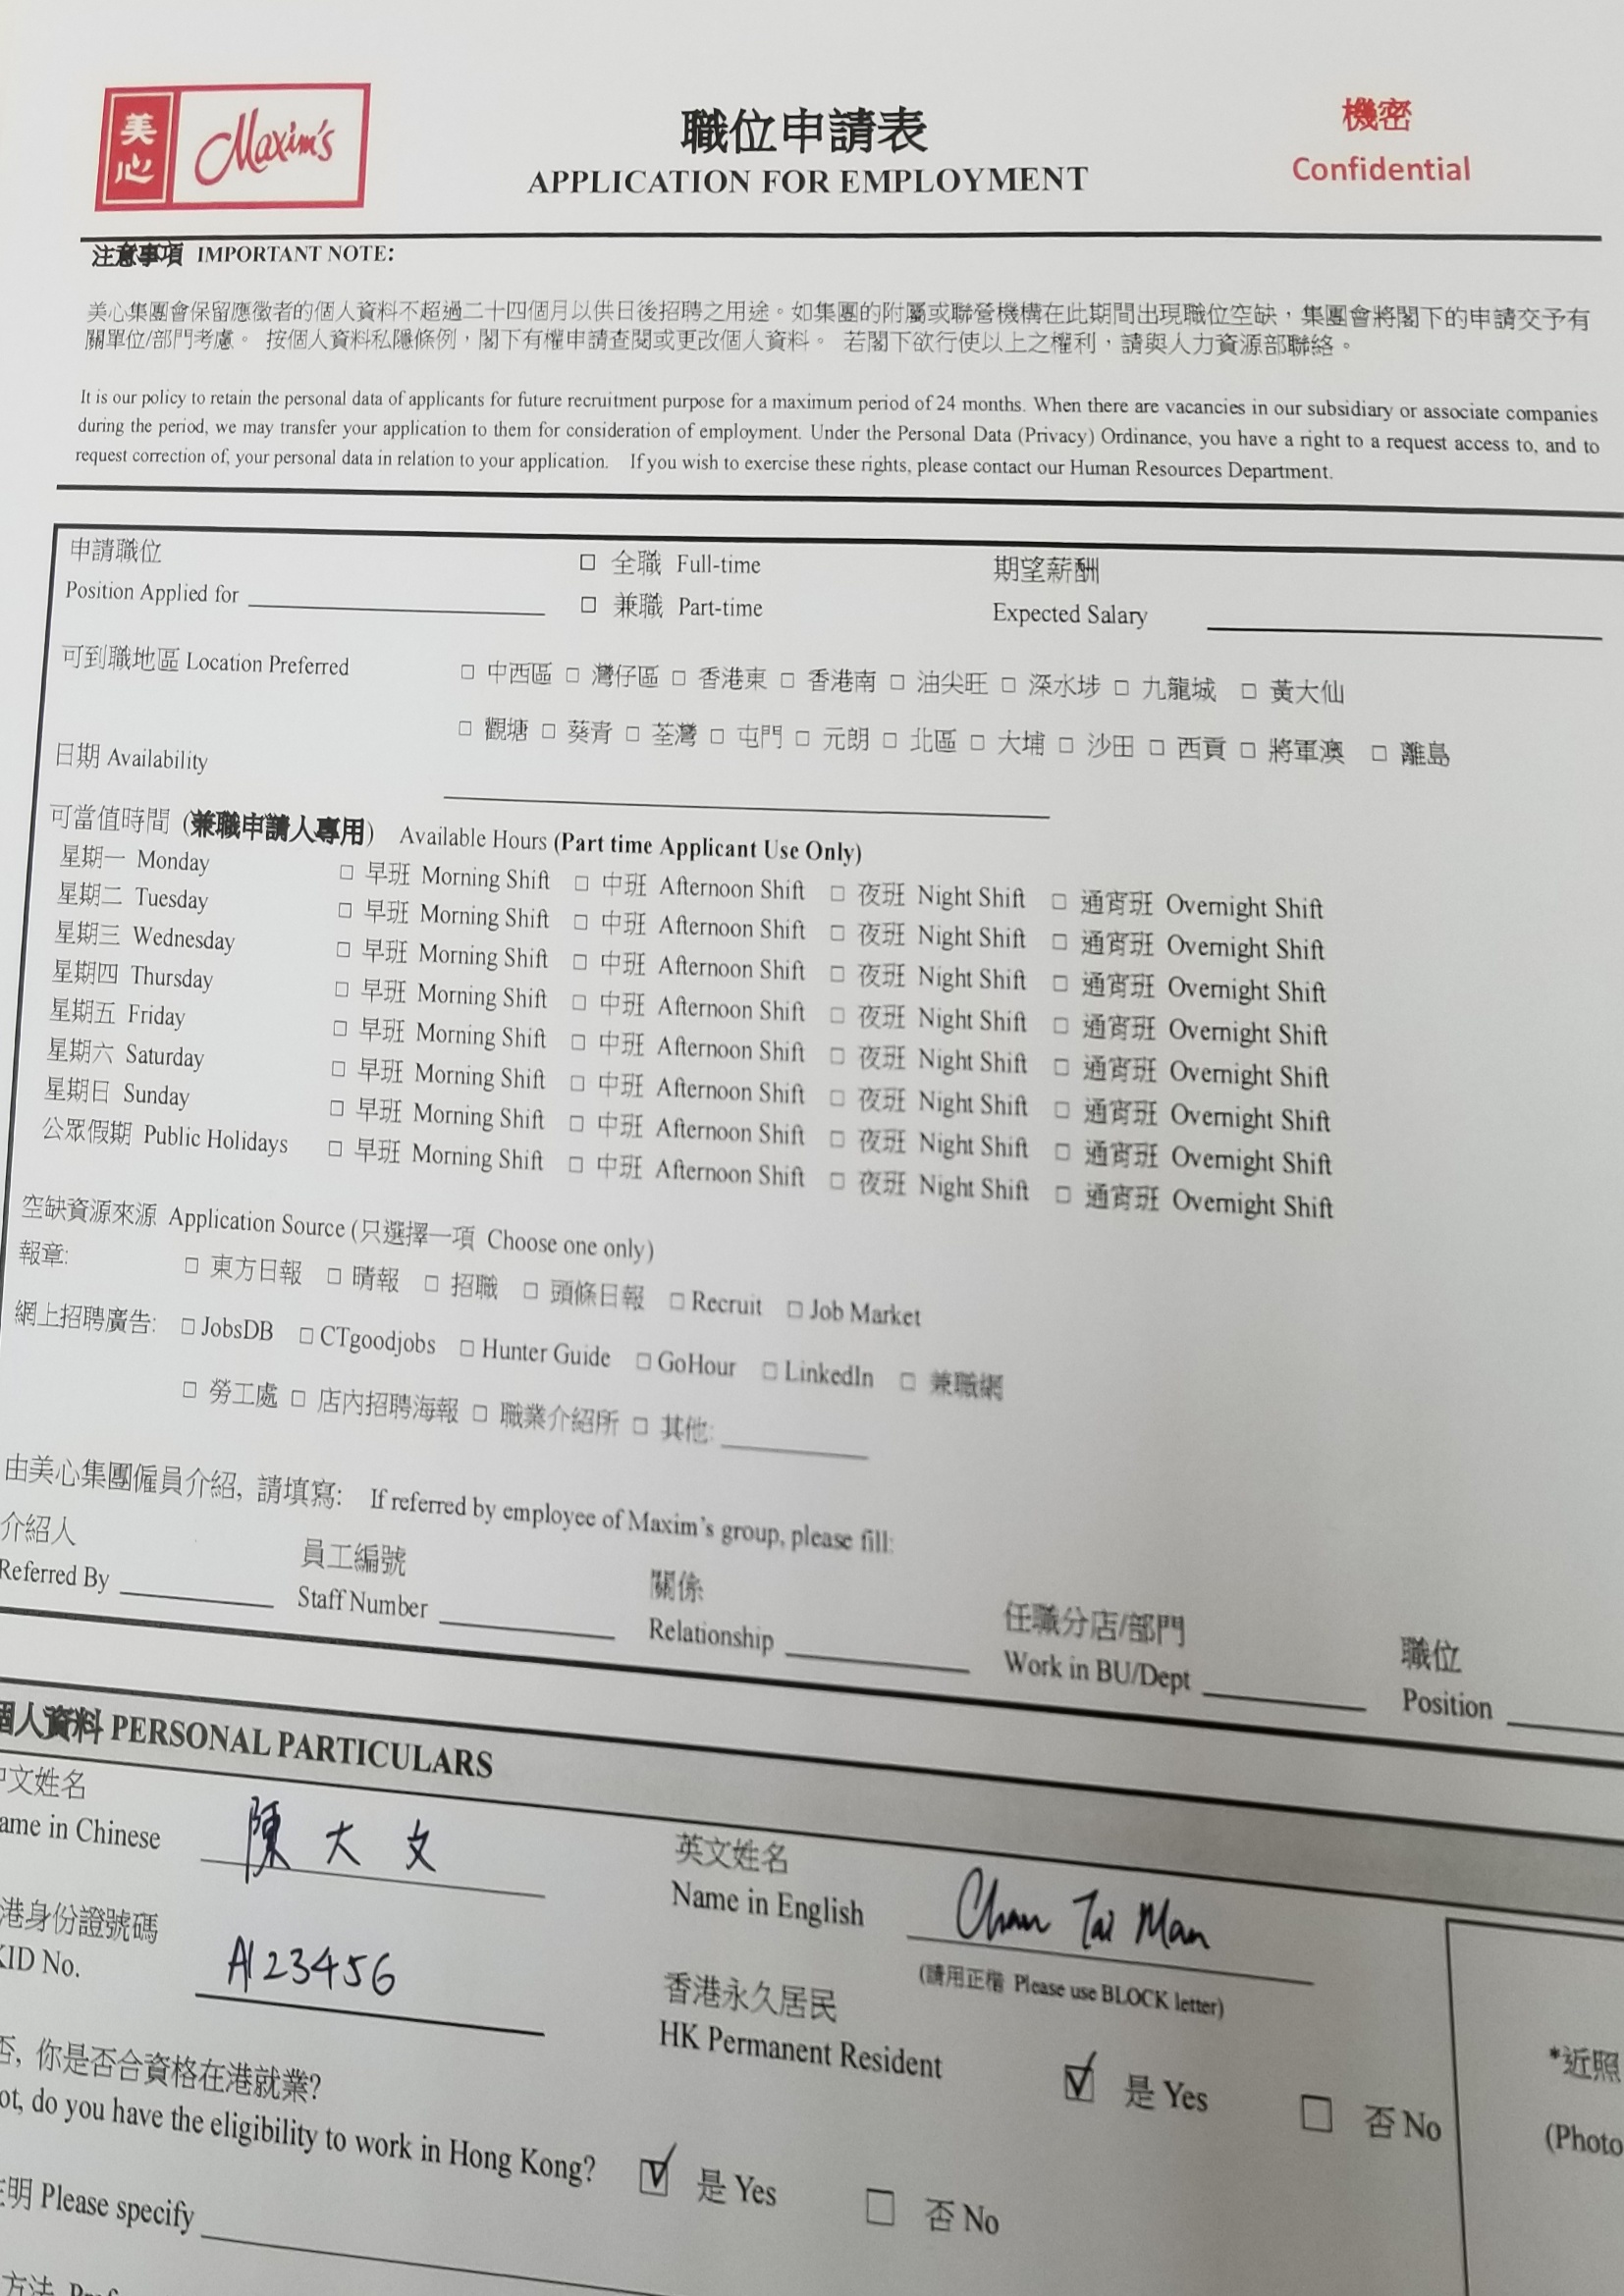 美心 Maxim's
職位申請表
APPLICATION FOR EMPLOYMENT
機密
Confidential
注意事項 IMPORTANT NOTE:
美心集團會保留應徵者的個人資料不超過二十四個月以供日後招聘之用途。如集團的附屬或聯營機構在此期間出現職位空缺，集團會將閣下的申請交予有
關單位/部門考慮。 按個人資料私隱條例，閣下有權申請查閱或更改個人資料。 若閣下欲行使以上之權利，請與人力資源部聯絡。
It is our policy to retain the personal data of applicants for future recruitment purpose for a maximum period of 24 months. When there are vacancies in our subsidiary or associate companies
during the period, we may transfer your application to them for consideration of employment. Under the Personal Data (Privacy) Ordinance, you have a right to a request access to, and to
request correction of, your personal data in relation to your application. If you wish to exercise these rights, please contact our Human Resources Department.
申請職位 □ 全職 Full-time 期望薪酬
Position Applied for □ 兼職 Part-time Expected Salary
可到職地區 Location Preferred □ 中西區 □ 灣仔區 □ 香港東 □ 香港南 □ 油尖旺 □ 深水埗 □ 九龍城 □ 黃大仙
□ 觀塘 □ 葵青 □ 荃灣 □ 屯門 □ 元朗 □ 北區 □ 大埔 □ 沙田 □ 西貢 □ 將軍澳 □ 離島
日期 Availability
可當值時間 (兼職申請人專用) Available Hours (Part time Applicant Use Only)
星期一 Monday □ 早班 Morning Shift □ 中班 Afternoon Shift □ 夜班 Night Shift □ 通宵班 Overnight Shift
星期二 Tuesday □ 早班 Morning Shift □ 中班 Afternoon Shift □ 夜班 Night Shift □ 通宵班 Overnight Shift
星期三 Wednesday □ 早班 Morning Shift □ 中班 Afternoon Shift □ 夜班 Night Shift □ 通宵班 Overnight Shift
星期四 Thursday □ 早班 Morning Shift □ 中班 Afternoon Shift □ 夜班 Night Shift □ 通宵班 Overnight Shift
星期五 Friday □ 早班 Morning Shift □ 中班 Afternoon Shift □ 夜班 Night Shift □ 通宵班 Overnight Shift
星期六 Saturday □ 早班 Morning Shift □ 中班 Afternoon Shift □ 夜班 Night Shift □ 通宵班 Overnight Shift
星期日 Sunday □ 早班 Morning Shift □ 中班 Afternoon Shift □ 夜班 Night Shift □ 通宵班 Overnight Shift
公眾假期 Public Holidays □ 早班 Morning Shift □ 中班 Afternoon Shift □ 夜班 Night Shift □ 通宵班 Overnight Shift
空缺資源來源 Application Source (只選擇一項 Choose one only)
報章: □ 東方日報 □ 晴報 □ 招職 □ 頭條日報 □ Recruit □ Job Market
網上招聘廣告: □ JobsDB □ CTgoodjobs □ Hunter Guide □ GoHour □ LinkedIn □ 兼職網
□ 勞工處 □ 店內招聘海報 □ 職業介紹所 □ 其他:
由美心集團僱員介紹, 請填寫: If referred by employee of Maxim's group, please fill:
介紹人 員工編號 關係 任職分店/部門 職位
Referred By Staff Number Relationship Work in BU/Dept Position
個人資料 PERSONAL PARTICULARS
中文姓名 英文姓名
ame in Chinese 陳大文 Name in English Chan Tai Man
(請用正楷 Please use BLOCK letter)
港身份證號碼 香港永久居民
KID No. A123456 HK Permanent Resident ☑ 是 Yes □ 否 No
*近照
(Photo
否, 你是否合資格在港就業?
ot, do you have the eligibility to work in Hong Kong? ☑ 是 Yes □ 否 No
明 Please specify
方法